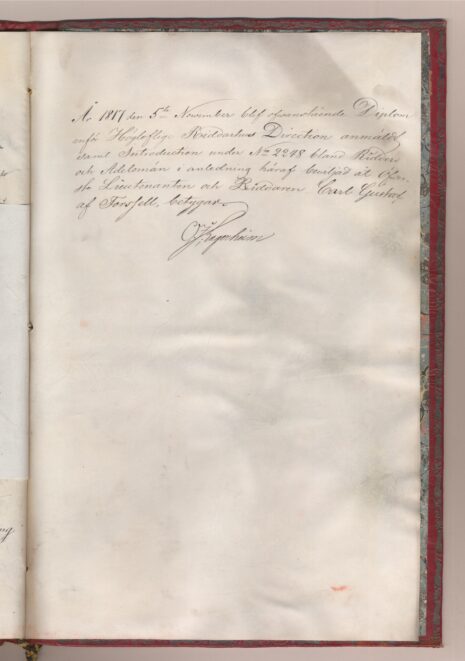 År 1817 den 5te November blef ofvanstående Diplom
inför Högloflige Riddarhus Direction anmäldt
samt Introduction under No 2248 bland Riddare
och Adelsmän i anledning häraf beviljad åt Öfver-
ste Lieutenanten och Riddaren Carl Gustaf
af Forssell, betygar